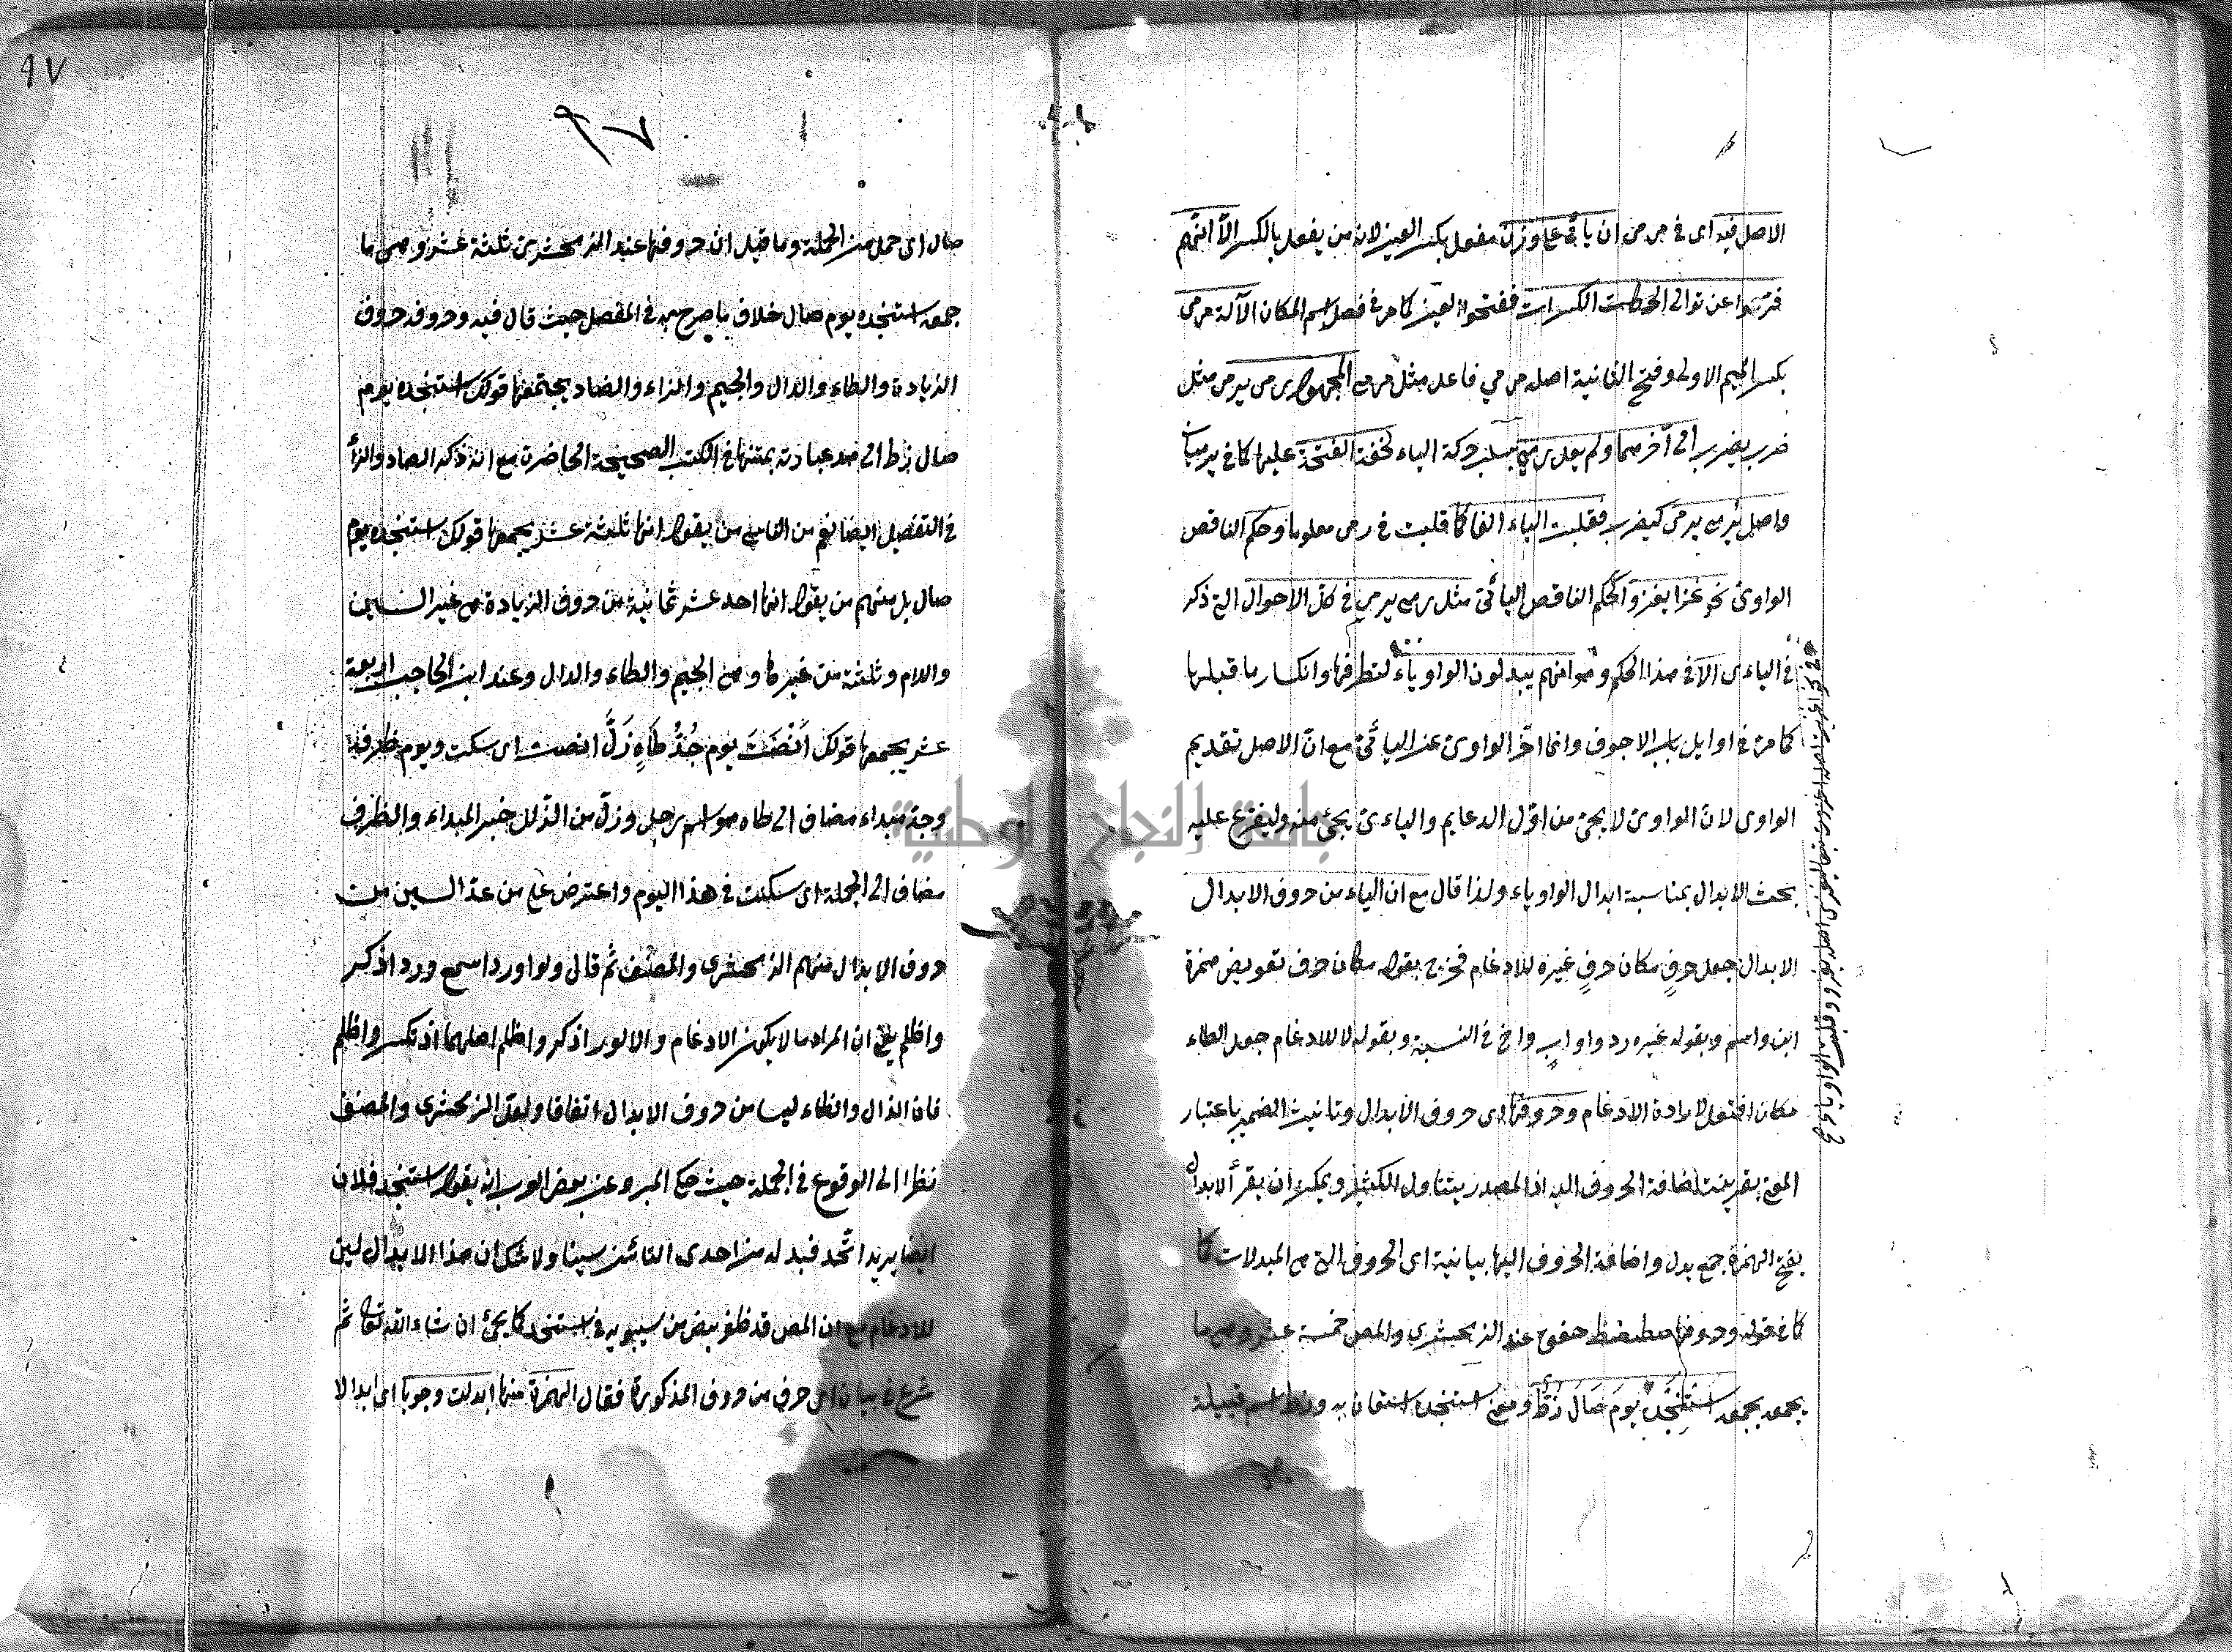 الاصل فيه اى فى مرمى ان ياتى على وزن مفعل بكسر العين لانه من يفعل بالكسر الا انهم
عن توالى الكسرات ففتحوا العين كما مر فى فصل اسم المكان الآلة مرمى
بكسر الميم الاولى وفتح الثانية اصله مرمي فاعل مثل مرمى المجهول رمى يرمى مثل
ضرب يضرب الى آخرهما ولم يعل رمي بسلب حركة الياء لخفة الفتحة عليها كما فى يرميان
واصل يرمى يرمى كيضرب فقلبت الياء الفا كما قلبت فى رمى معلوما وحكم الناقص
الواوى نحو غزا يغزو الحكم الناقص اليائى مثل رمى يرمى فى كل الاحوال التى ذكر
فى الياءى الا فى هذا الحكم وهو انهم يبدلون الواو ياء لتطرفها وانكسار ما قبلها
كما مر فى اوايل باب الاجوف وانما اخر الواوى عن اليائى مع ان الاصل تقديم
الواوى لان الواوى لا يجئ من اول الدعايم والياءى يجئ منه وليفرع عليه
بحث الابدال بمناسبة ابدال الواو ياء ولذا قال مع ان الياء من حروف الابدال
الابدال جعل حرف مكان حرف غيره للادغام فخرج بقوله مكان حرف تعويض همزة
ابن واسم وبقوله غيره رد واو اب واخ فى النسبة وبقوله لا للادغام جعل الطاء
مكان افتعل لارادة الادغام وحروفها اى حروف الابدال وتانيث الضمير باعتبار
المعنى بقرينة اضافة الحروف اليه اذ المصدر يتناول الكثير ويمكن ان يقرأ الابدال
بفتح الهمزة جمع بدل واضافة الحروف اليها بيانية اى الحروف التى هى المبدلات كما
كما فى قوله وحروفها عند الزمخشرى والمص خمسة عشر وهى ما
يجمعه يجمعه استنجده يوم صال زط ومعنى استنجده استعان به وزط اسم قبيلة
صال اى حمل من الحملة وما قيل ان حروفها عند الزمخشرى ثلثة عشر وهى ما
جمعه استنجده يوم صال خلاف ما صرح به فى المفصل حيث قال فيه وحروفه حروف
الزيادة والطاء والدال والجيم والزاء والصاد يجتمعها قولك استنجده يوم
صال زط الى هذه عبارته بمتنها فى الكتب الصحيحة الحاضرة مع انه ذكر الصاد والزأ
فى التفصيل ايضا نعم من الناس من يقول انها ثلثة عشر يجمعها قولك استنجده يوم
صال بل منهم من يقول انها احد عشر ثمانية من حروف الزيادة هى غير السين
واللام وثلثة من غيرها وهى الجيم والطاء والدال وعند ابن الحاجب اربعة
عشر يجمعها قولك انصت يوم جد طاه زل انصت اى سكت ويوم ظرفه
وجد مبتداء مضاف الى طاه هو اسم رجل وزل من الذلل خبر المبتداء والظرف
مضاف الى الجملة اى سكنت فى هذا اليوم واعترض على من عد السين من
حروف الابدال منهم الزمخشرى والمصنف ثم قال ولو اورد اسمع ورد اذكر
واظلم يعنى ان المراد ما لا يكون للادغام والا لورد اذكر واظلم اصلهما اذتكر واظلم
فان الذال والظاء ليسا من حروف الابدال اتفاقا ولعل الزمخشرى والمصنف
نظرا الى الوقوع فى الجملة حيث حكى المبرد عن بعض العرب انه يقول استخذ فلان
ايضا يريد اتخذ فبدله من احدى التائين سينا ولا شك ان هذا الابدال ليس
للادغام مع ان المص قد ظفر ببعض من سيبويه فى استخذ كما يجئ ان شاء الله تعالى ثم
شرع فى بيان اى حرف من حروف المذكورة فقال الهمزة منها ابدلت وجوبا اى ابدالا
٩٧
٩٧
جامعة النجاح الوطنية